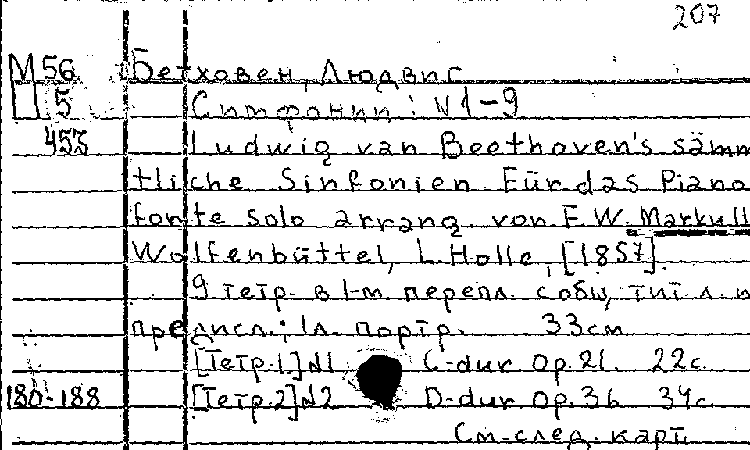 207
М56 Бетховен, Людвиг
Ц5 Симфонии: N 1-9
453 Ludwig van Beethoven's sämm
tliche Sinfonien Für das Piano
forte solo arrang. von F.W. Markull
Wolfenbüttel, L. Holle, [1857].
9 тетр. в 1-м перепл. с общ. тит. л. и
предисл.; 1л. портр. 33см
[Тетр.1] N1 C-dur Op. 21. 22с.
180-188 [Тетр.2] N2 D-dur Op. 36 34с.
См. след. карт.